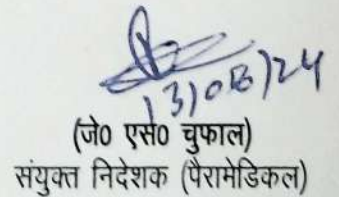 13/06/24
(जे0 एस0 चुफाल)
संयुक्त निदेशक (पैरामेडिकल)